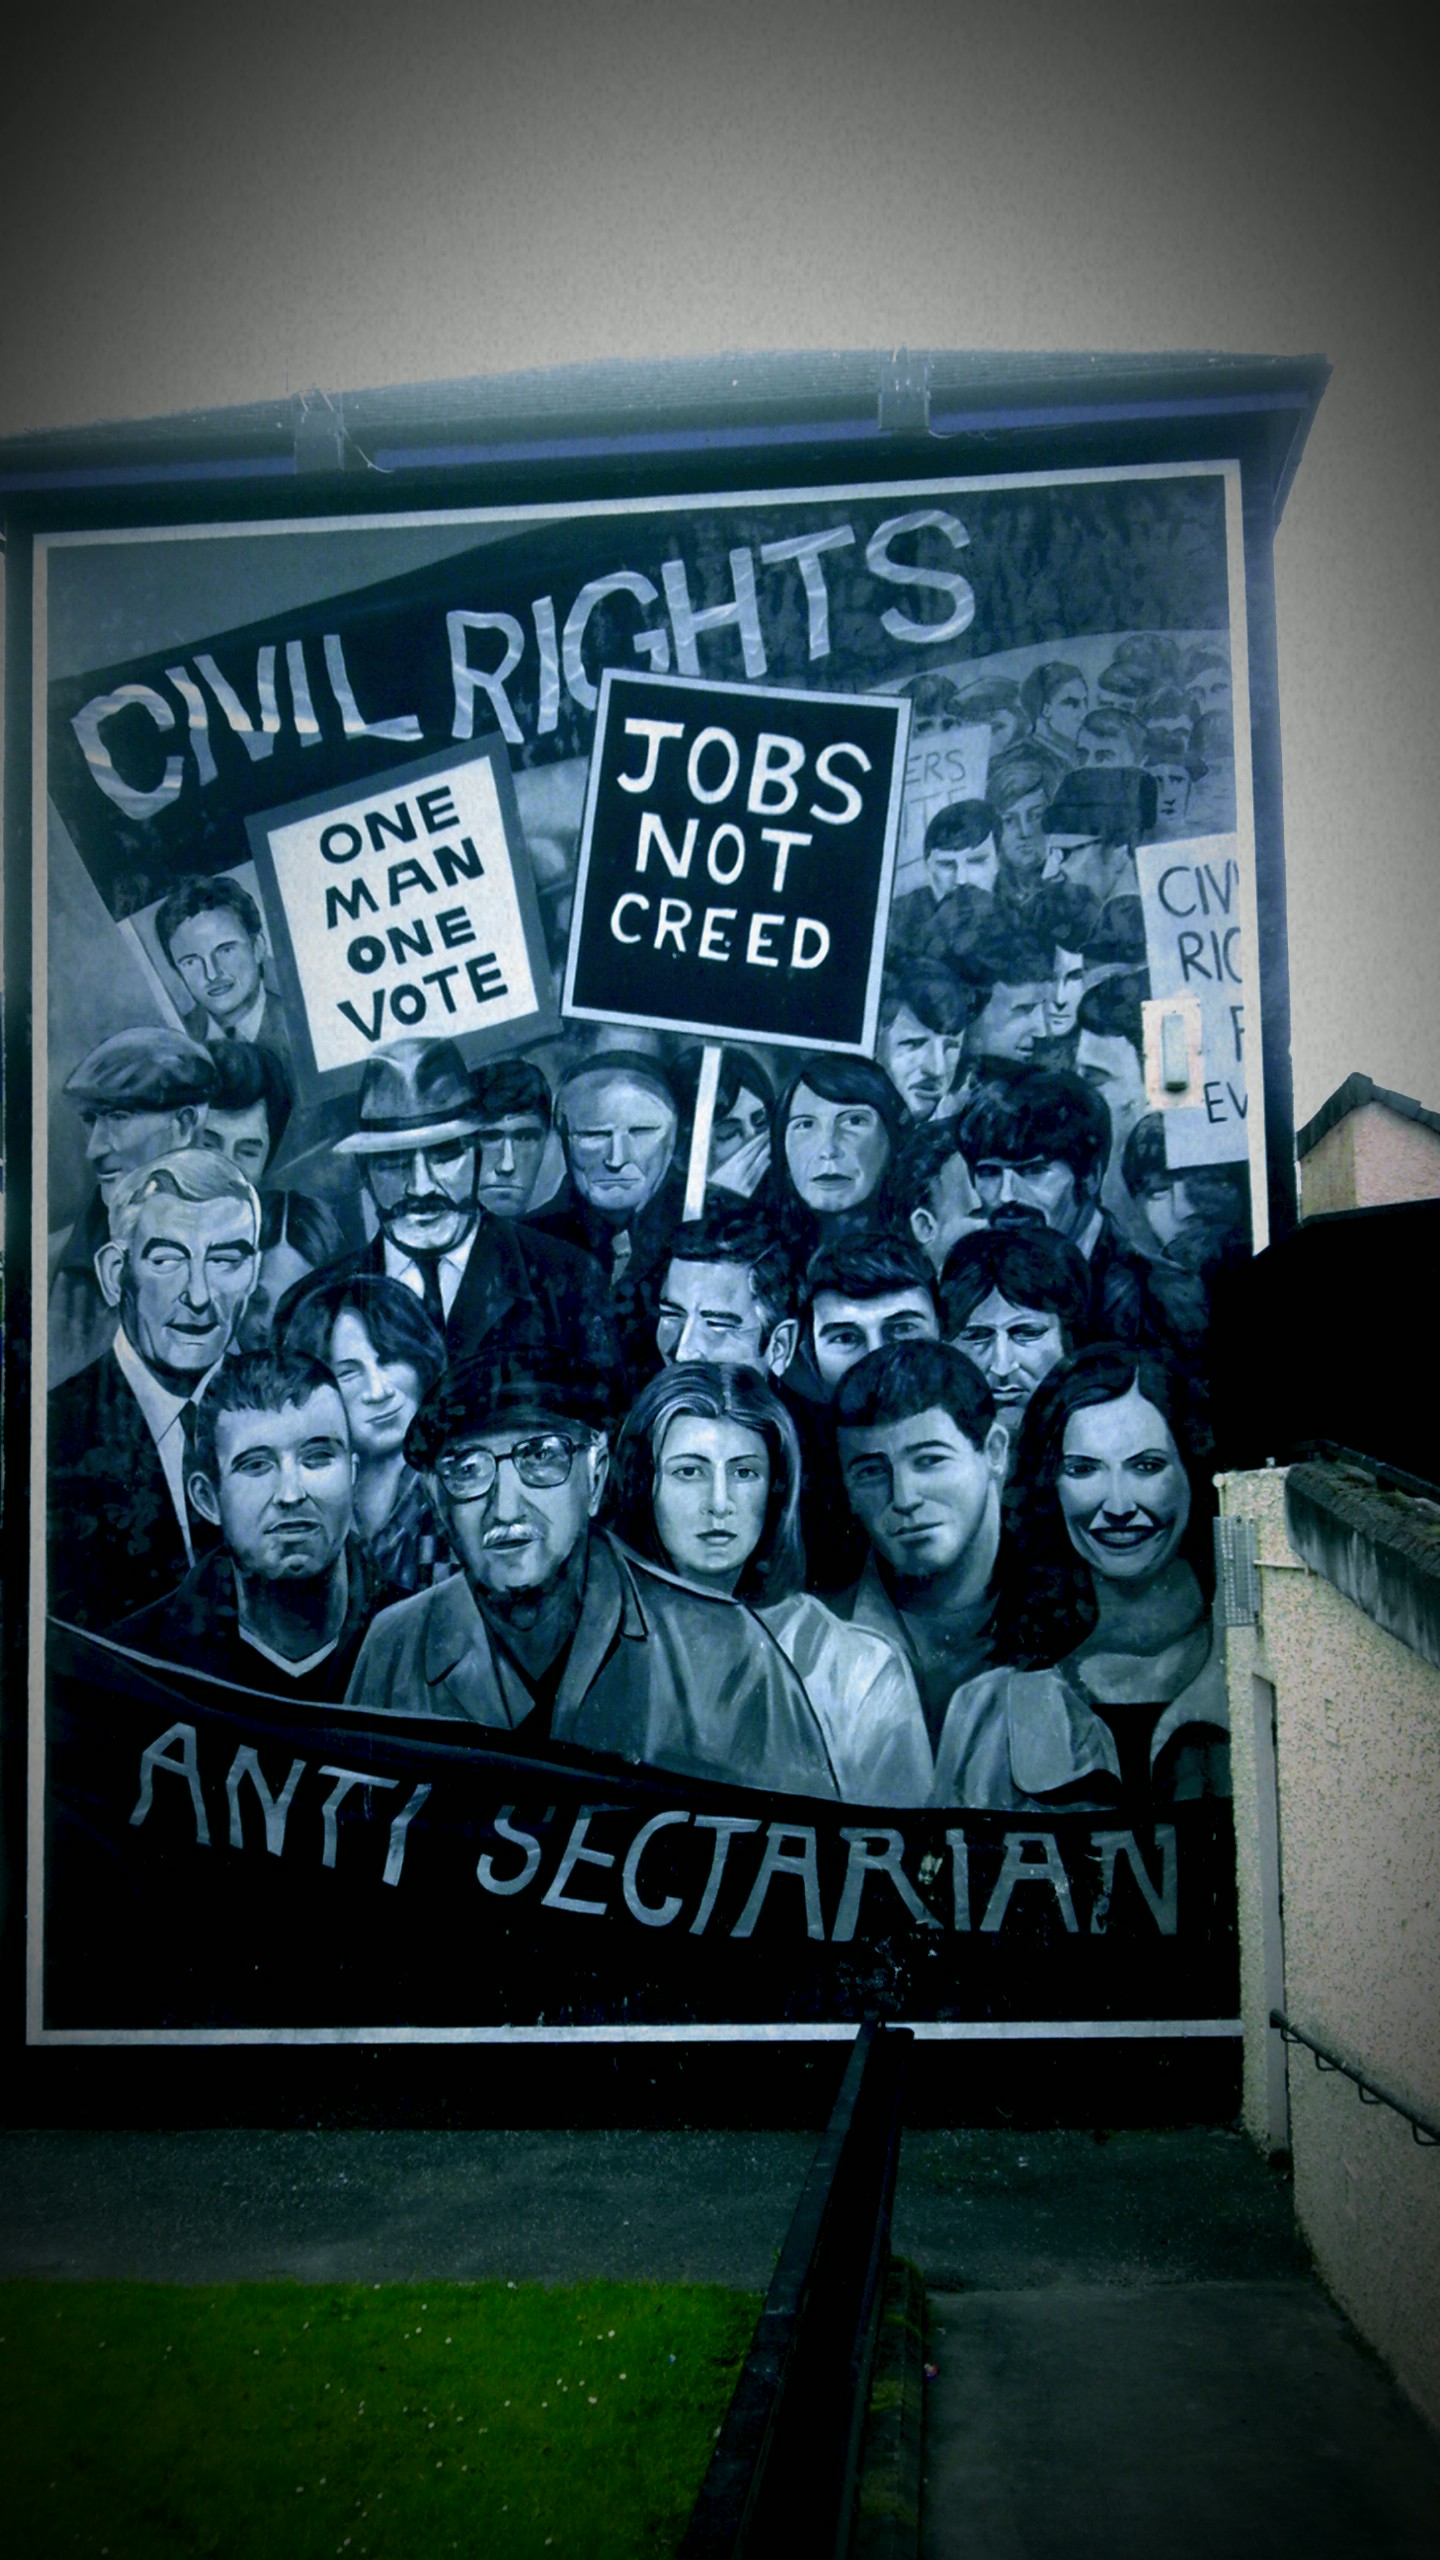 CIVIL RIGHTS
ONE
MAN
ONE
VOTE
JOBS
NOT
CREED
ERS
CIV
RIG
F
EV
ANTI SECTARIAN